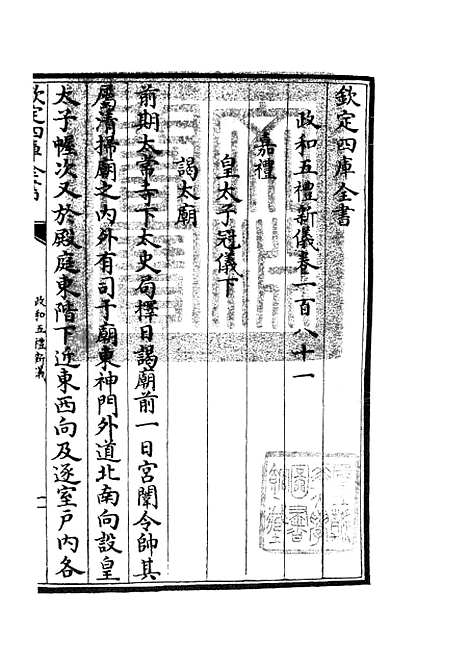 欽定四庫全書
政和五禮新儀卷一百八十一
嘉禮
皇太子冠儀下
謁太廟
前期太常寺下太史局擇日謁廟前一日宮闈令帥其
屬清掃廟之内外有司于廟東神門外道北南向設皇
太子幄次又於殿庭東階下近東西向及逐室戸内各
欽定四庫全書
政和五禮新儀